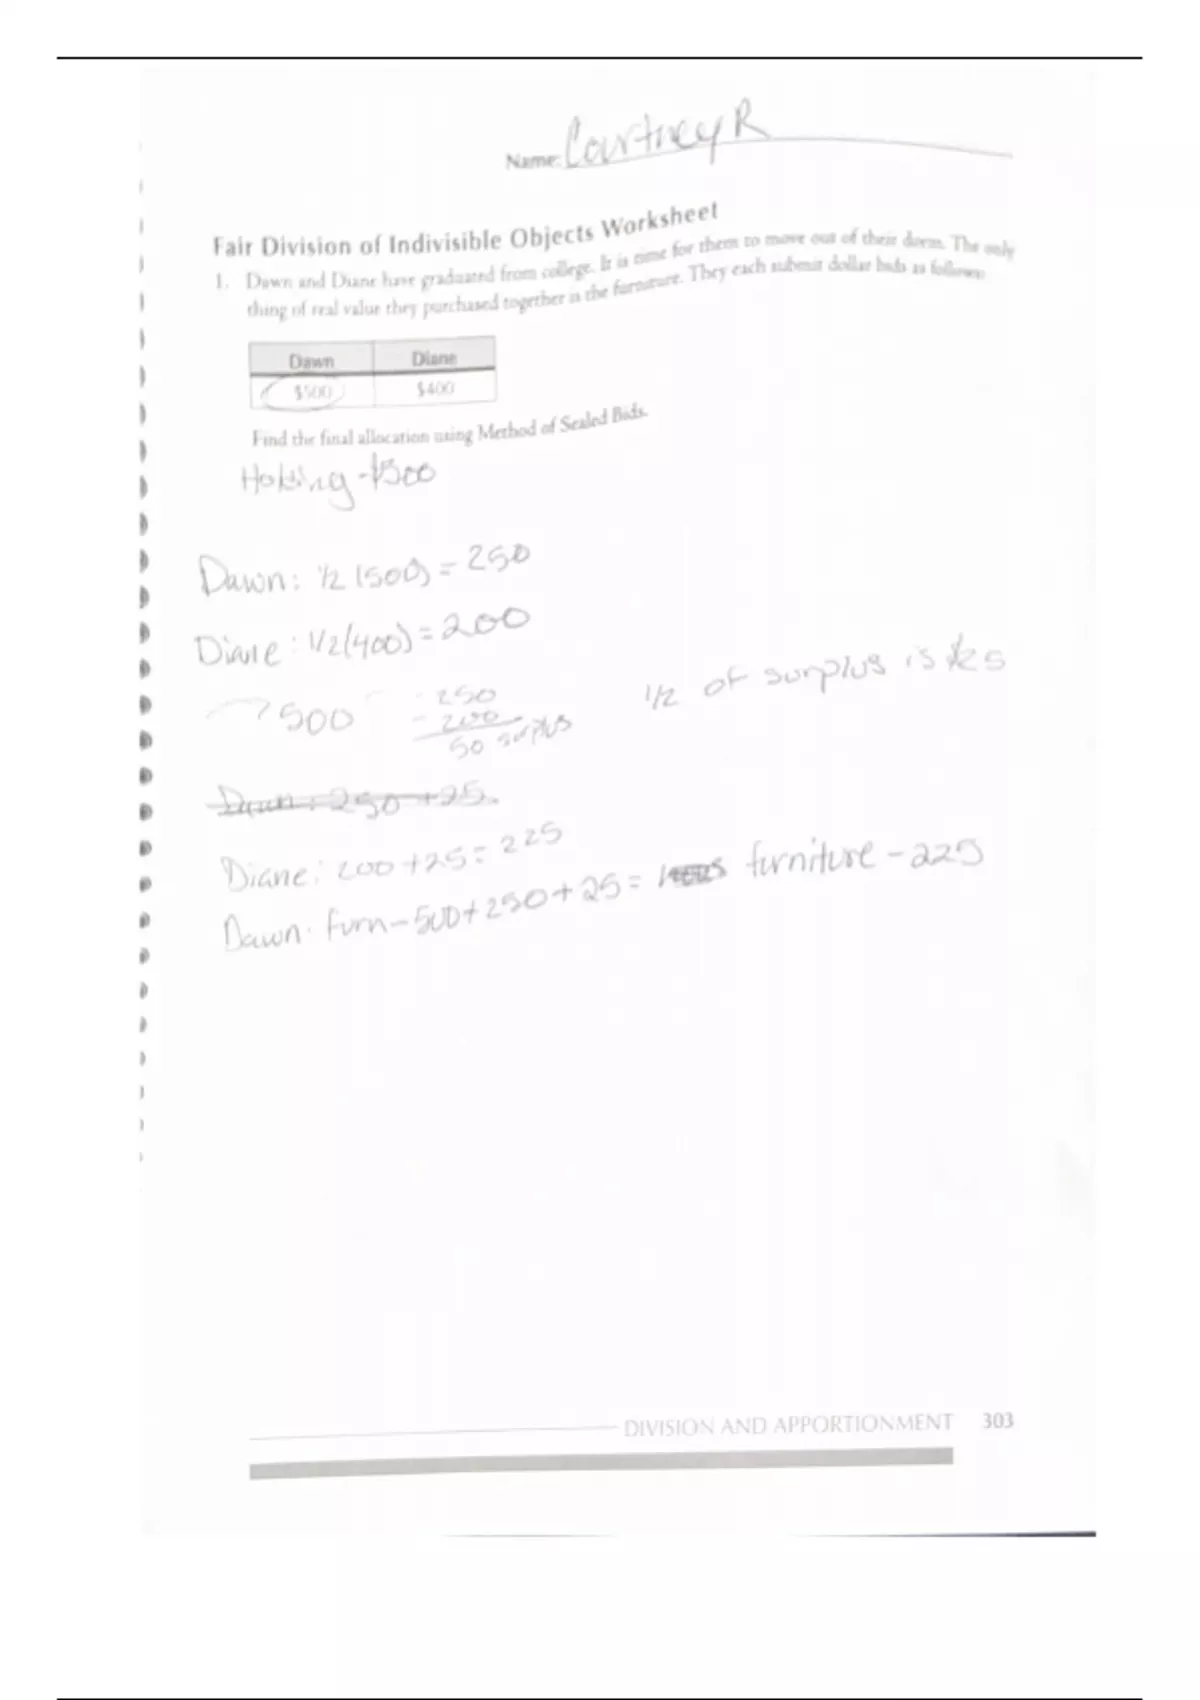 Name: Courtney R
Fair Division of Indivisible Objects Worksheet
1. Dawn and Diane have graduated from college. It is time for them to move out of their dorm. The only
thing of real value they purchased together is the furniture. They each submit dollar bids as follows:
Dawn Diane
$500 $400
Find the final allocation using Method of Sealed Bids.
Holding - $500
Dawn: 1/2 (500) = 250
Diane: 1/2(400) = 200
500
250
- 200
50 surplus
1/2 of surplus is $25
Dawn: 250 + 25
Diane: 200 + 25 = 225
Dawn: furn - 500 + 250 + 25 = furniture - 225
DIVISION AND APPORTIONMENT 303